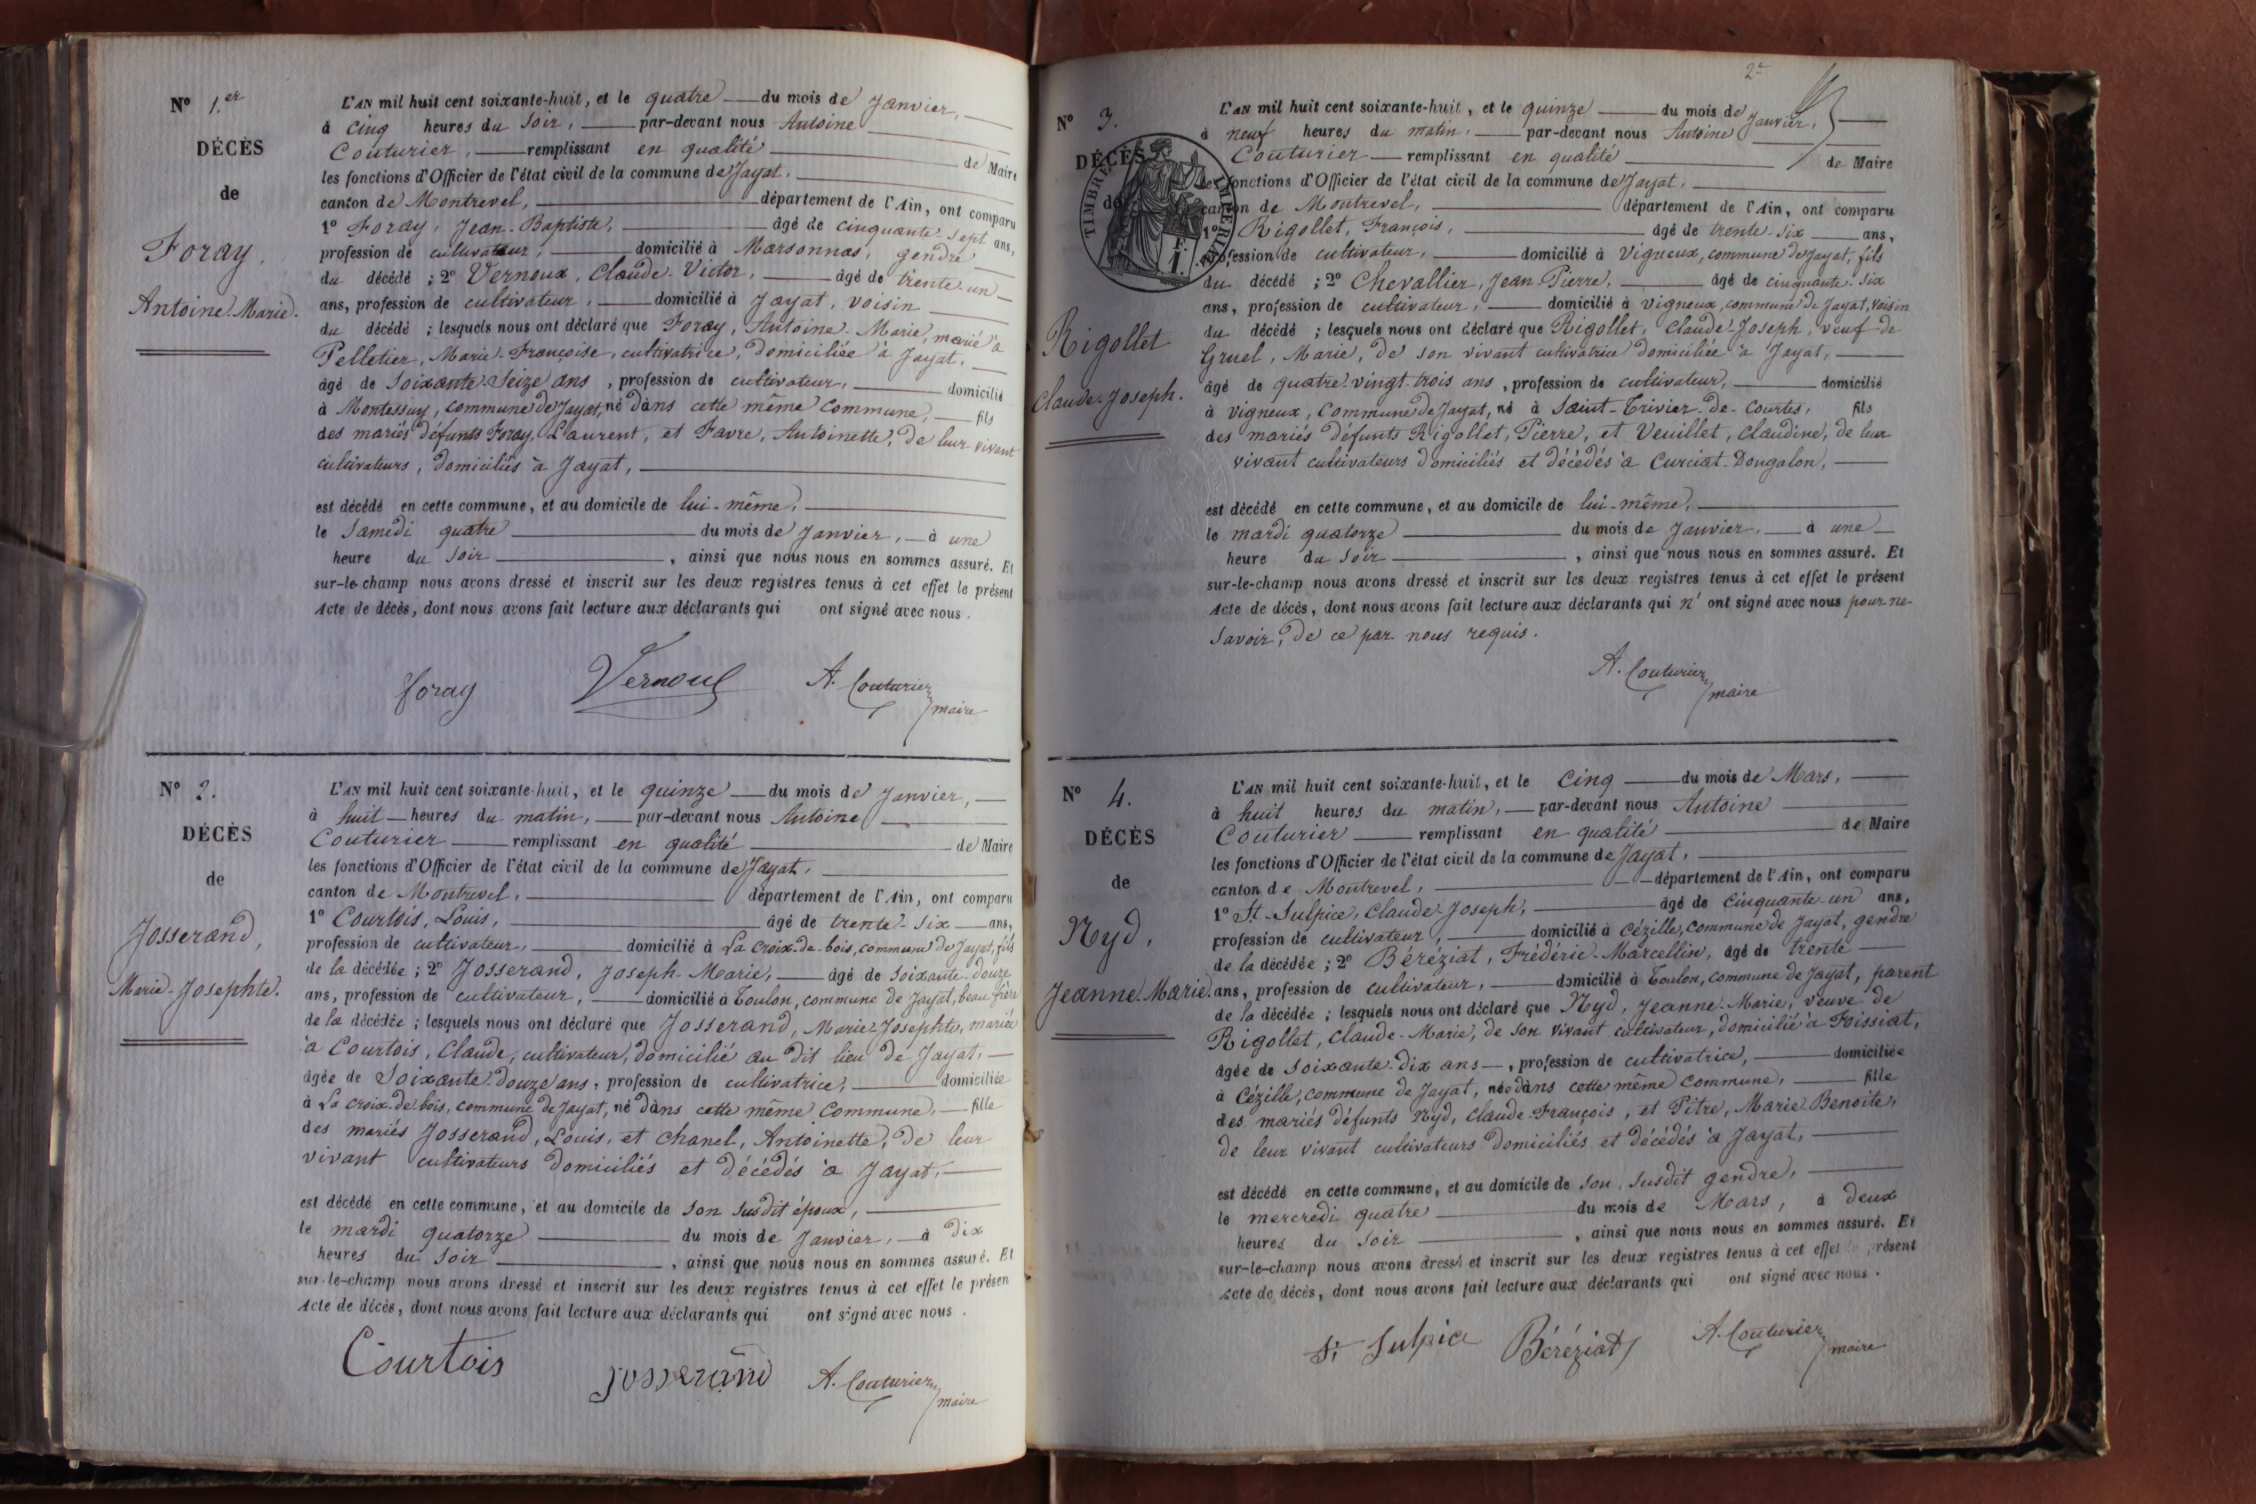 N° 1.er
DÉCÈS
de
Foray,
Antoine-Marie.
L'AN mil huit cent soixante-huit, et le quatre du mois de Janvier,
à cinq heures du soir, par-devant nous Antoine
Couturier, remplissant en qualité de Maire
les fonctions d'Officier de l'état civil de la commune de Jayat,
canton de Montrevel, département de l'Ain, ont comparu
1° Foray, Jean-Baptiste, âgé de cinquante-sept ans,
profession de cultivateur, domicilié à Marsonnas, gendre
du décédé ; 2° Vernoux, Claude-Victor, âgé de trente-un
ans, profession de cultivateur, domicilié à Jayat, voisin
du décédé ; lesquels nous ont déclaré que Foray, Antoine-Marie, marié à
Pelletier, Marie-Françoise, cultivatrice, domiciliée à Jayat,
âgé de soixante-seize ans, profession de cultivateur, domicilié
à Montessuy, commune de Jayat, né dans cette même commune, fils
des mariés défunts Foray, Laurent, et Favre, Antoinette, de leur vivant
cultivateurs, domiciliés à Jayat,
est décédé en cette commune, et au domicile de lui-même,
le samedi quatre du mois de Janvier, à une
heure du soir, ainsi que nous nous en sommes assuré. Et
sur-le-champ nous avons dressé et inscrit sur les deux registres tenus à cet effet le présent
Acte de décès, dont nous avons fait lecture aux déclarants qui ont signé avec nous.
foray Vernoux A. Couturier
maire
N° 2.
DÉCÈS
de
Josserand,
Marie-Josephte.
L'AN mil huit cent soixante-huit, et le quinze du mois de Janvier,
à huit heures du matin, par-devant nous Antoine
Couturier remplissant en qualité de Maire
les fonctions d'Officier de l'état civil de la commune de Jayat,
canton de Montrevel, département de l'Ain, ont comparu
1° Courtois, Louis, âgé de trente-six ans,
profession de cultivateur, domicilié à La croix-de-bois, commune de Jayat, fils
de la décédée ; 2° Josserand, Joseph-Marie, âgé de soixante-douze
ans, profession de cultivateur, domicilié à Toulon, commune de Jayat, beau frère
de la décédée ; lesquels nous ont déclaré que Josserand, Marie-Josephte, mariée
à Courtois, Claude, cultivateur, domicilié au dit lieu de Jayat,
âgée de soixante-douze ans, profession de cultivatrice, domiciliée
à La croix-de-bois, commune de Jayat, né dans cette même commune, fille
des mariés Josserand, Louis, et Chanel, Antoinette, de leur
vivant cultivateurs domiciliés et décédés à Jayat,
est décédé en cette commune, et au domicile de son susdit époux,
le mardi quatorze du mois de Janvier, à dix
heures du soir, ainsi que nous nous en sommes assuré. Et
sur-le-champ nous avons dressé et inscrit sur les deux registres tenus à cet effet le présen
Acte de décès, dont nous avons fait lecture aux déclarants qui ont signé avec nous.
Courtois Josserand A. Couturier
maire
2e
N° 3.
DÉCÈS
de
TIMBRE IMPÉRIAL
1 F.
Rigollet
Claude-Joseph.
L'AN mil huit cent soixante-huit, et le quinze du mois de Janvier,
à neuf heures du matin, par-devant nous Antoine
Couturier remplissant en qualité de Maire
les fonctions d'Officier de l'état civil de la commune de Jayat,
canton de Montrevel, département de l'Ain, ont comparu
1° Rigollet, François, âgé de trente-six ans,
profession de cultivateur, domicilié à Vigneux, commune de Jayat, fils
du décédé ; 2° Chevallier, Jean-Pierre, âgé de cinquante-six
ans, profession de cultivateur, domicilié à Vigneux, commune de Jayat, voisin
du décédé ; lesquels nous ont déclaré que Rigollet, Claude-Joseph, veuf de
Gruel, Marie, de son vivant cultivatrice domiciliée à Jayat,
âgé de quatre-vingt-trois ans, profession de cultivateur, domicilié
à Vigneux, commune de Jayat, né à Saint-Trivier-de-Courtes, fils
des mariés défunts Rigollet, Pierre, et Veuillet, Claudine, de leur
vivant cultivateurs domiciliés et décédés à Curciat-Dongalon,
est décédé en cette commune, et au domicile de lui-même,
le mardi quatorze du mois de Janvier, à une
heure du soir, ainsi que nous nous en sommes assuré. Et
sur-le-champ nous avons dressé et inscrit sur les deux registres tenus à cet effet le présent
Acte de décès, dont nous avons fait lecture aux déclarants qui n'ont signé avec nous pour ne
savoir, de ce par nous requis.
A. Couturier
maire
N° 4.
DÉCÈS
de
Nyd,
Jeanne-Marie.
L'AN mil huit cent soixante-huit, et le cinq du mois de Mars,
à huit heures du matin, par-devant nous Antoine
Couturier remplissant en qualité de Maire
les fonctions d'Officier de l'état civil de la commune de Jayat,
canton de Montrevel, département de l'Ain, ont comparu
1° St-Sulpice, Claude-Joseph, âgé de cinquante-un ans,
profession de cultivateur, domicilié à Cézille, commune de Jayat, gendre
de la décédée ; 2° Béréziat, Frédéric-Marcellin, âgé de trente
ans, profession de cultivateur, domicilié à Toulon, commune de Jayat, parent
de la décédée ; lesquels nous ont déclaré que Nyd, Jeanne-Marie, veuve de
Rigollet, Claude-Marie, de son vivant cultivateur, domicilié à Foissiat,
âgée de soixante-dix ans, profession de cultivatrice, domiciliée
à Cézille, commune de Jayat, née dans cette même commune, fille
des mariés défunts Nyd, Claude-François, et Pitre, Marie-Benoite,
de leur vivant cultivateurs domiciliés et décédés à Jayat,
est décédé en cette commune, et au domicile de son susdit gendre,
le mercredi quatre du mois de Mars, à deux
heures du soir, ainsi que nous nous en sommes assuré. Et
sur-le-champ nous avons dressé et inscrit sur les deux registres tenus à cet effet le présent
Acte de décès, dont nous avons fait lecture aux déclarants qui ont signé avec nous.
St Sulpice Béréziat A. Couturier
maire